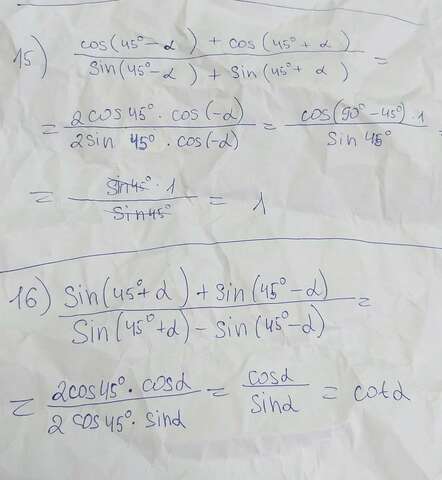 15) cos(45°-α) + cos(45°+α) / Sin(45°-α) + Sin(45°+α) =
= 2cos45° · cos(-α) / 2sin 45° · cos(-α) = cos(90°-45°)·1 / Sin 45° =
= Sin45° · 1 / Sin45° = 1
16) Sin(45°+α) + Sin(45°-α) / Sin(45°+α) - Sin(45°-α) =
= 2cos45° · cosα / 2cos45° · sinα = cosα / Sinα = cotα